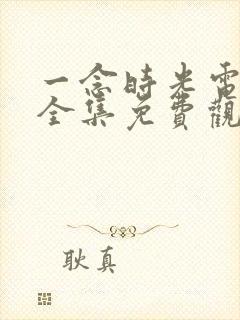 一念時光電
全集免費觀
耿真